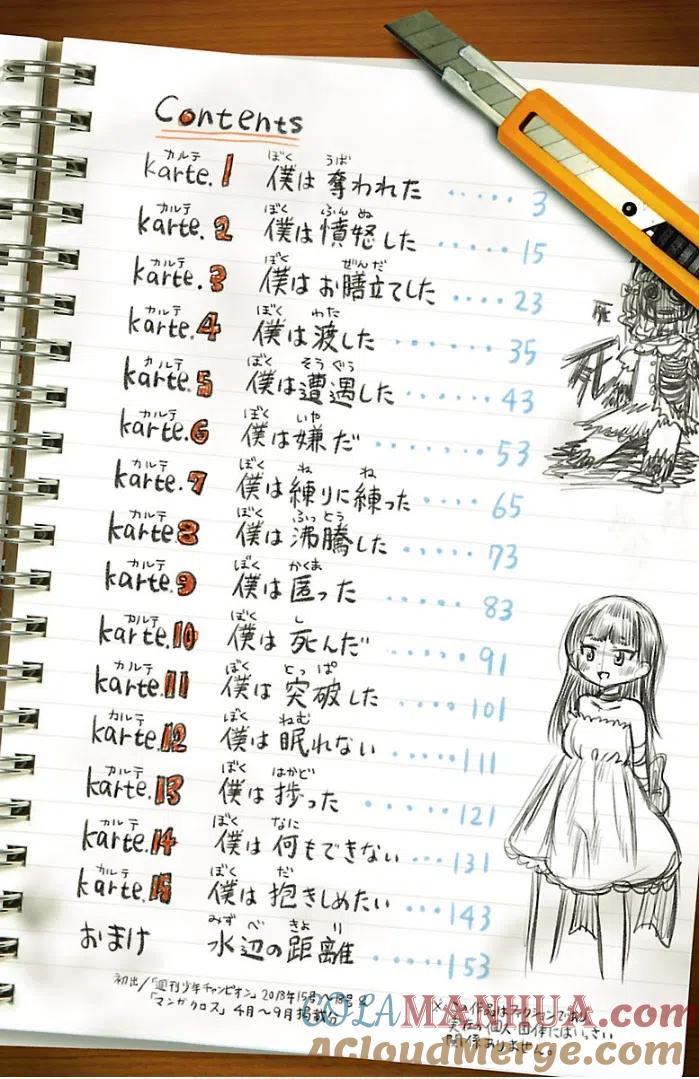 Contents
karte.1 僕は奪われた ..... 3
karte.2 僕は憤怒した ..... 15
karte.3 僕はお膳立てした .... 23
karte.4 僕は渡した ...... 35
karte.5 僕は遭遇した .... 43
karte.6 僕は嫌だ ....... 53
karte.7 僕は練りに練った .... 65
karte.8 僕は沸騰した .... 73
karte.9 僕は匿った ..... 83
karte.10 僕は死んだ ...... 91
karte.11 僕は突破した .... 101
karte.12 僕は眠れない ..... 111
karte.13 僕は捗った ..... 121
karte.14 僕は何もできない ... 131
karte.15 僕は抱きしめたい .... 143
おまけ 水辺の距離 .... 153
初出/「週刊少年チャンピオン」2018年15号〜18号&
「マンガクロス」4月〜9月掲載分
死
COLAMANHUA.com
ACloudMerge.com
関係ありません。